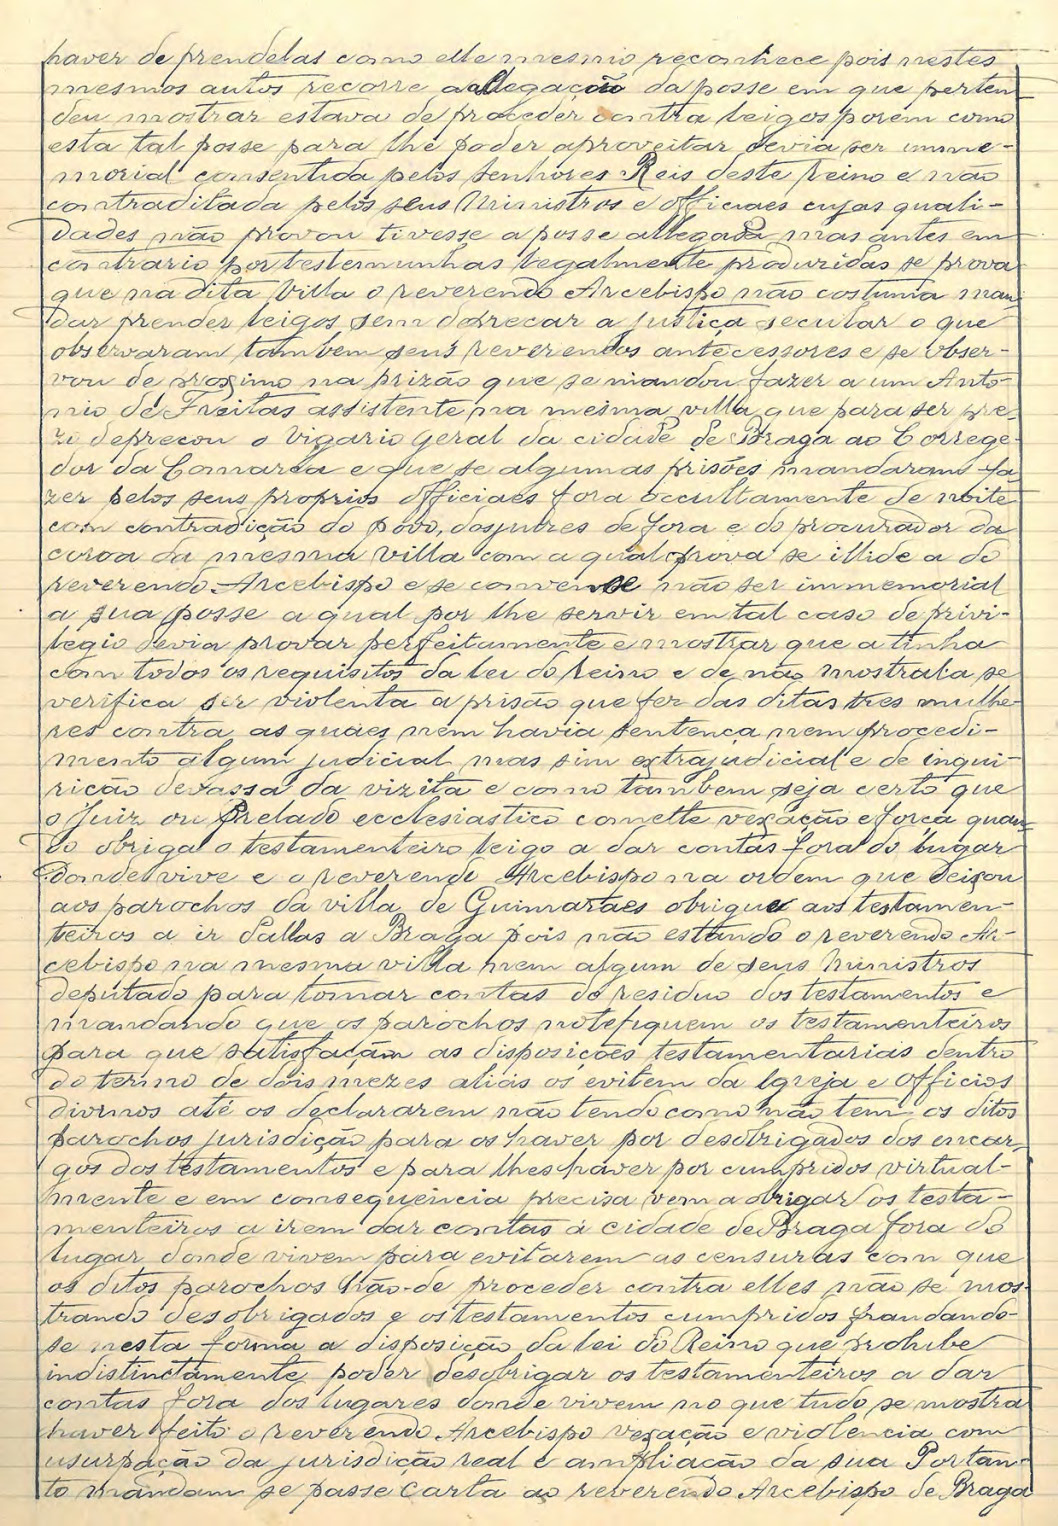 haver de prendelas como elle mesmo reconhece pois nestes
mesmos autos recorre a allegação da posse em que perten
deu mostrar estava de proceder contra leigos porem como
esta tal posse para lhe poder aproveitar devia ser imme-
morial consentida pelos senhores Reis deste Reino e não
contraditada pelos seus Ministros e officiaes cujas quali-
dades não provou tivesse a posse allegada mas antes em
contrario por testemunhas legalmente produzidas se prova
que na dita Villa o reverendo Arcebispo não costuma man
dar prender leigos sem deprecar a justiça secular o que
observaram tambem seus reverendos antecessores e se obser-
vou de proximo na prizão que se mandou fazer a um Anto-
nio de Freitas assistente na mesma villa que para ser pre-
zo deprecou o Vigario geral da cidade de Braga ao Correge-
dor da Comarca e que se algumas prisões mandaram fa-
zer pelos seus proprios officiaes fora occultamente de noite
com contradição do povo, dos juizes de fora e do procurador da
coroa da mesma villa com a qual prova se illide a do
reverendo Arcebispo e se convense não ser immemorial
a sua posse a qual por lhe servir em tal caso de privi-
legio devia provar perfeitamente e mostrar que a tinha
com todos os requisitos da lei do Reino e de não mostrala se
verifica ser violenta a prisão que fez das ditas tres mulhe-
res contra as quaes nem havia sentença nem procedi-
mento algum judicial mas sim extrajudicial e de inqui-
rição devassa da vizita e como tambem seja certo que
o Juiz ou Prelado ecclesiastico comette vexação e força quan-
do obriga o testamenteiro leigo a dar contas fora do lugar
donde vive e o reverendo Arcebispo na ordem que deixou
aos parochos da villa de Guimarães obrigue aos testamen-
teiros a ir dallas a Braga pois não estando o reverendo Ar-
cebispo na mesma villa nem algum de seus Ministros
deputado para tomar contas do residuo dos testamentos e
mandando que os parochos notefiquem os testamenteiros
para que satisfaçam as disposições testamentarias dentro
do termo de dois mezes aliás os evitem da Igreja e Officios
divinos até os declararem não tendo como não tem os ditos
parochos jurisdição para os haver por desobrigados dos encar-
gos dos testamentos e para lhes haver por cumpridos virtual-
mente e em consequencia precisa vem a obrigar os testa-
menteiros a irem dar contas á cidade de Braga fora do
lugar donde vivem para evitarem as censuras com que
os ditos parochos hão-de proceder contra elles não se mos-
trando desobrigados e os testamentos cumpridos fraudando-
se nesta forma a disposição da lei do Reino que prohibe
indistinctamente poder desobrigar os testamenteiros a dar
contas fora dos lugares donde vivem no que tudo se mostra
haver feito o reverendo Arcebispo vexação e violencia com
usurpação da jurisdição real e ampliação da sua Portan-
to mandam se passe Carta ao reverendo Arcebispo de Braga